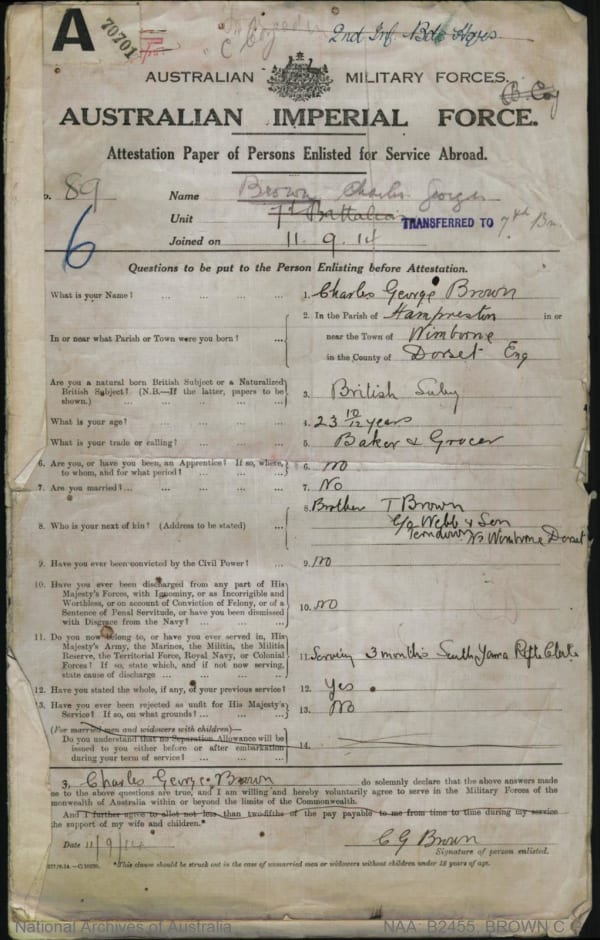 A
70701
C Coy
2nd Inf. Bde Hqrs
AUSTRALIAN MILITARY FORCES.
B. Coy
AUSTRALIAN IMPERIAL FORCE.
Attestation Paper of Persons Enlisted for Service Abroad.
o. 89
Name Brown Charles George
Unit 7th Battalion TRANSFERRED TO 7th Bn.
Joined on 11. 9. 14
6
Questions to be put to the Person Enlisting before Attestation.
What is your Name? ... ... ... ... 1. Charles George Brown
In or near what Parish or Town were you born? ...
2. In the Parish of Hampreston in or
near the Town of Wimborne
in the County of Dorset Eng
Are you a natural born British Subject or a Naturalized
British Subject? (N.B.—If the latter, papers to be
shown.) ... ... ... ...
3. British Suby
What is your age? ... ... ... ... 4. 23 10/12 years
What is your trade or calling? ... ... ... 5. Baker & Grocer
6. Are you, or have you been, an Apprentice? If so, where,
to whom, and for what period? ... ... ...
6. No
7. Are you married? ... ... ... ... 7. No
8. Who is your next of kin? (Address to be stated) ...
8. Brother T Brown
C/o Webb & Son
Ferndown Nr Wimborne Dorset
9. Have you ever been convicted by the Civil Power? ... 9. No
10. Have you ever been discharged from any part of His
Majesty's Forces, with Ignominy, or as Incorrigible and
Worthless, or on account of Conviction of Felony, or of a
Sentence of Penal Servitude, or have you been dismissed
with Disgrace from the Navy? ... ... ...
10. No
11. Do you now belong to, or have you ever served in, His
Majesty's Army, the Marines, the Militia, the Militia
Reserve, the Territorial Force, Royal Navy, or Colonial
Forces? If so, state which, and if not now serving,
state cause of discharge ... ... ...
11. Serving 3 months South Yarra Rifle Club
12. Have you stated the whole, if any, of your previous service? 12. Yes
3. Have you ever been rejected as unfit for His Majesty's
Service? If so, on what grounds? ... ... ...
13. No
(For married men and widowers with children)—
Do you understand that no Separation Allowance will be
issued to you either before or after embarkation
during your term of service? ... ...
14.
Charles George Brown do solemnly declare that the above answers made
me to the above questions are true, and I am willing and hereby voluntarily agree to serve in the Military Forces of the
monwealth of Australia within or beyond the limits of the Commonwealth.
And I further agree to allot not less than two-fifths of the pay payable to me from time to time during my service
the support of my wife and children.*
Date 11/9/14 C G Brown
Signature of person enlisted.
*This clause should be struck out in the case of unmarried men or widowers without children under 18 years of age.
National Archives of Australia
NAA: B2455, BROWN C G